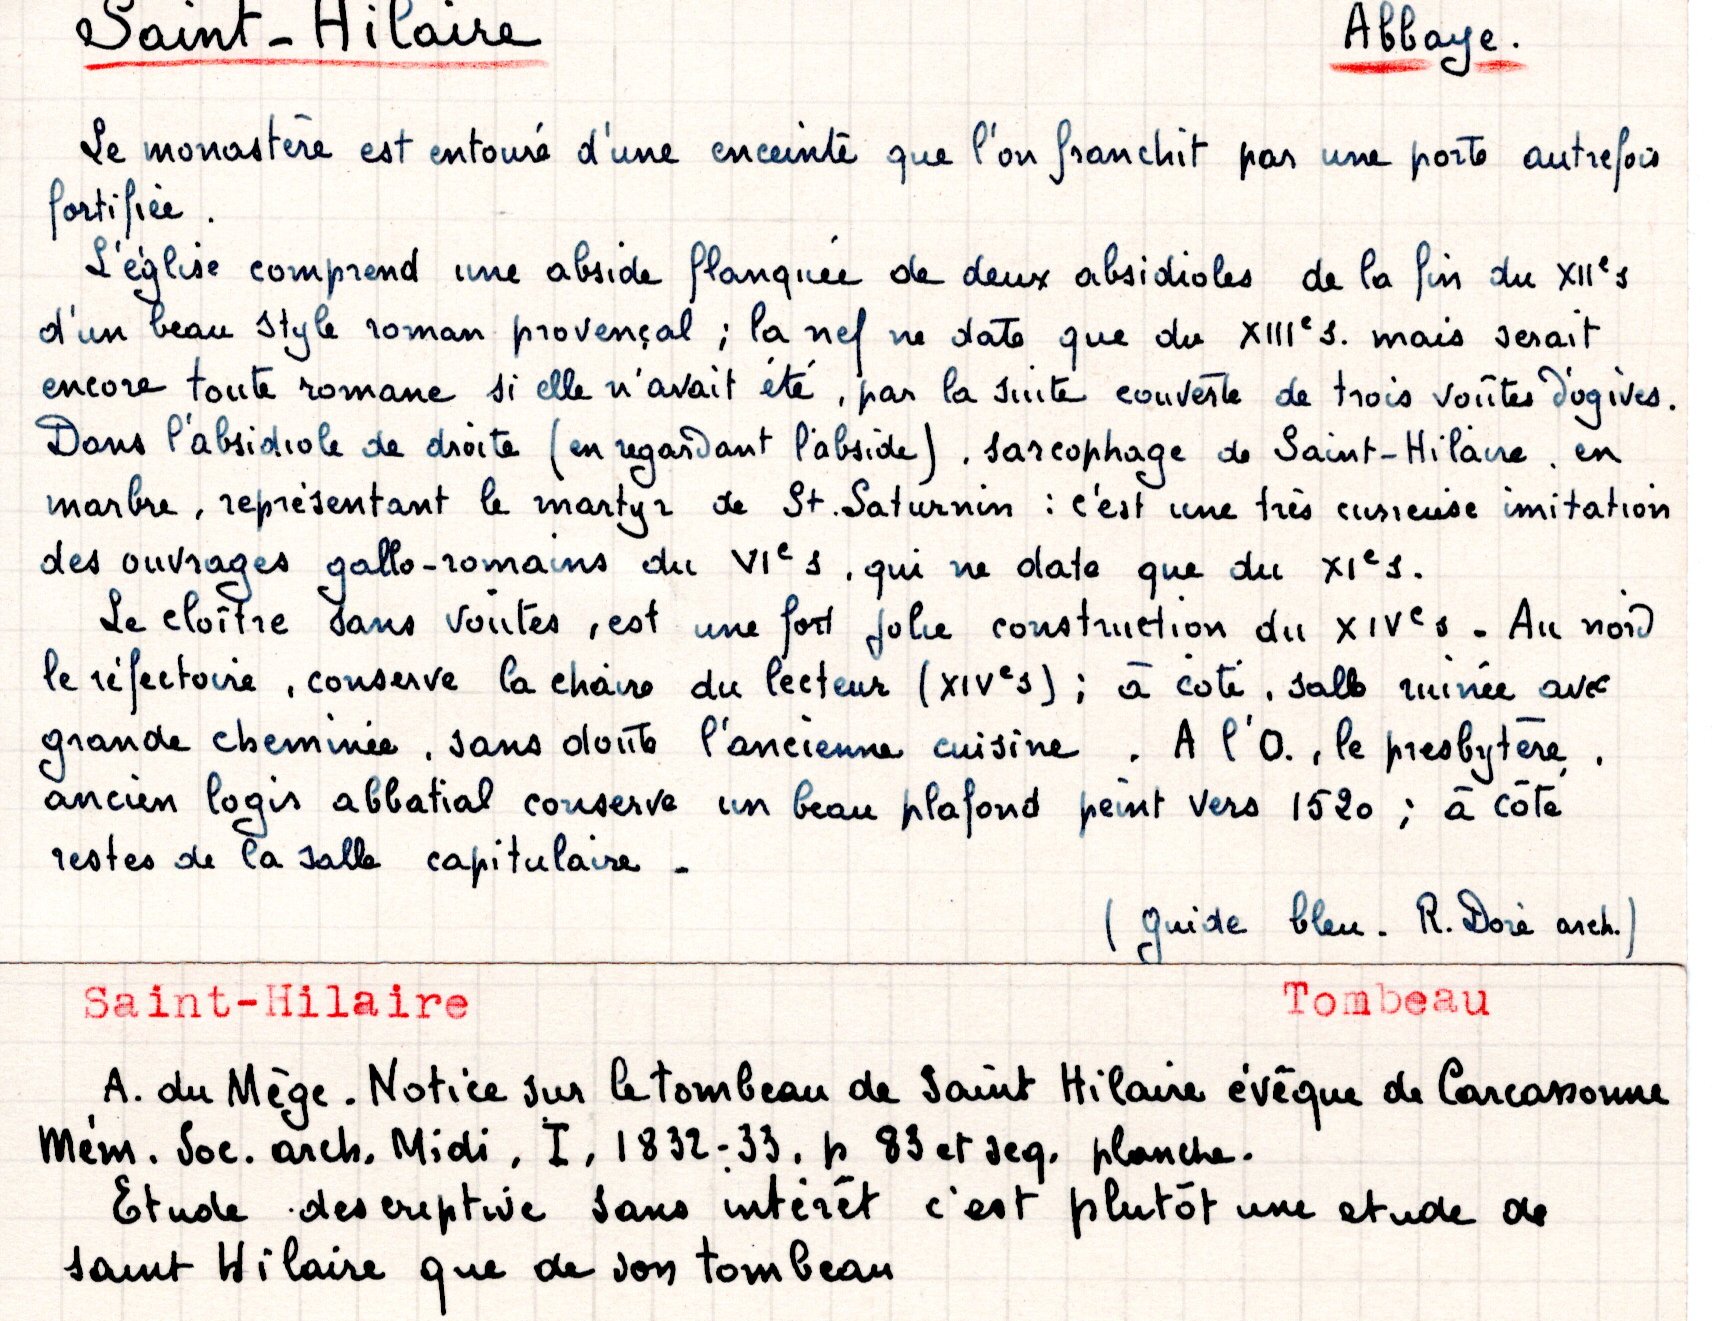 Saint-Hilaire Abbaye.
Le monastère est entouré d'une enceinte que l'on franchit par une porte autrefois
fortifiée.
L'église comprend une abside flanquée de deux absidioles de la fin du XIIe s
d'un beau style roman provençal ; la nef ne date que du XIIIe s. mais serait
encore toute romane si elle n'avait été, par la suite couverte de trois voûtes d'ogives.
Dans l'absidiole de droite (en regardant l'abside), sarcophage de Saint-Hilaire, en
marbre, représentant le martyr de St. Saturnin : c'est une très curieuse imitation
des ouvrages gallo-romains du VIe s, qui ne date que du XIe s.
Le cloître sans voûtes, est une fort jolie construction du XIVe s. Au nord
le réfectoire, conserve la chaire du lecteur (XIVe s) ; à côté, salle ruinée avec
grande cheminée, sans doute l'ancienne cuisine. A l'O., le presbytère,
ancien logis abbatial conserve un beau plafond peint vers 1520 ; à côté
restes de la salle capitulaire -
(Guide bleu. R. Doré arch.)
Saint-Hilaire Tombeau
A. du Mège. Notice sur le tombeau de Saint Hilaire évêque de Carcassonne
Mém. Soc. arch. Midi, I, 1832-33, p 83 et seq. planche.
Etude descriptive sans intérêt c'est plutôt une etude de
saint Hilaire que de son tombeau